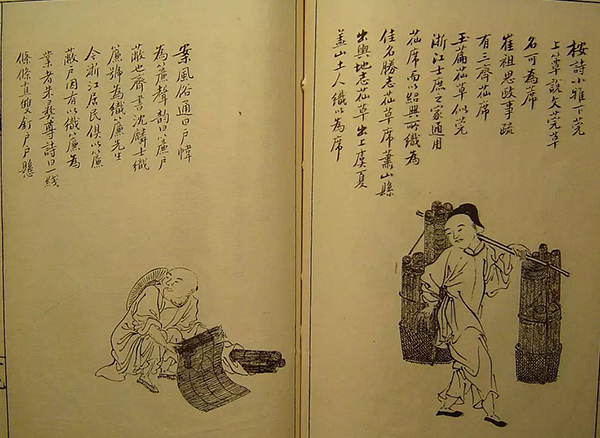 按詩小雅下莞
上簟說文莞草
名可為席
崔祖思政事疏
有三齊苮席
玉篇苮草似莞
浙江士庶之家通用
苮席而以紹興所織為
佳名勝志苮草席蕭山縣
出輿地志苮草出上虞夏
蓋山土人織以為席
案風俗通曰戶幃
為簾聲類曰簾戶
蔽也齊書沈麟士織
簾號為織簾先生
今浙江居民俱以簾
蔽戶因有以織簾為
業者朱彝尊詩曰一线
條條直雙釘戶戶懸